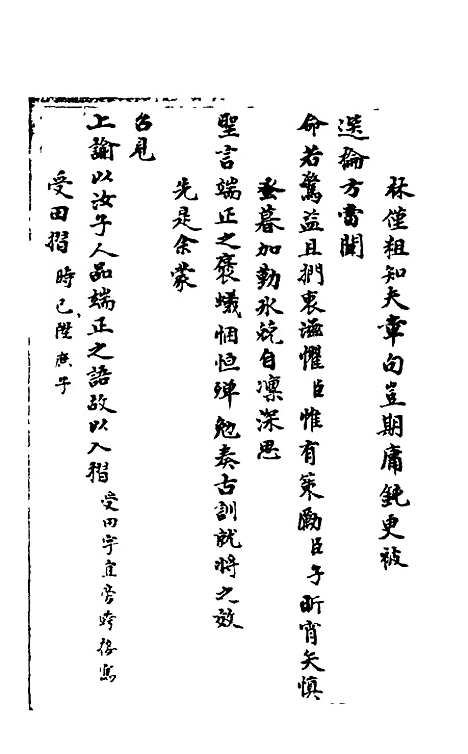 秝僅粗知夫章句豈期庸鈍更被
選掄方當聞
命若驚益且捫衷滋懼臣惟有策勵臣子昕宵矢慎
蚤暮加勤氷兢自凜深思
聖言端正之褒蟻悃恒殫勉奏古訓就將之效
先是余蒙
召見
上諭以汝子人品端正之語故以入摺受田字宜旁時後寫
受田摺時已陞庶子